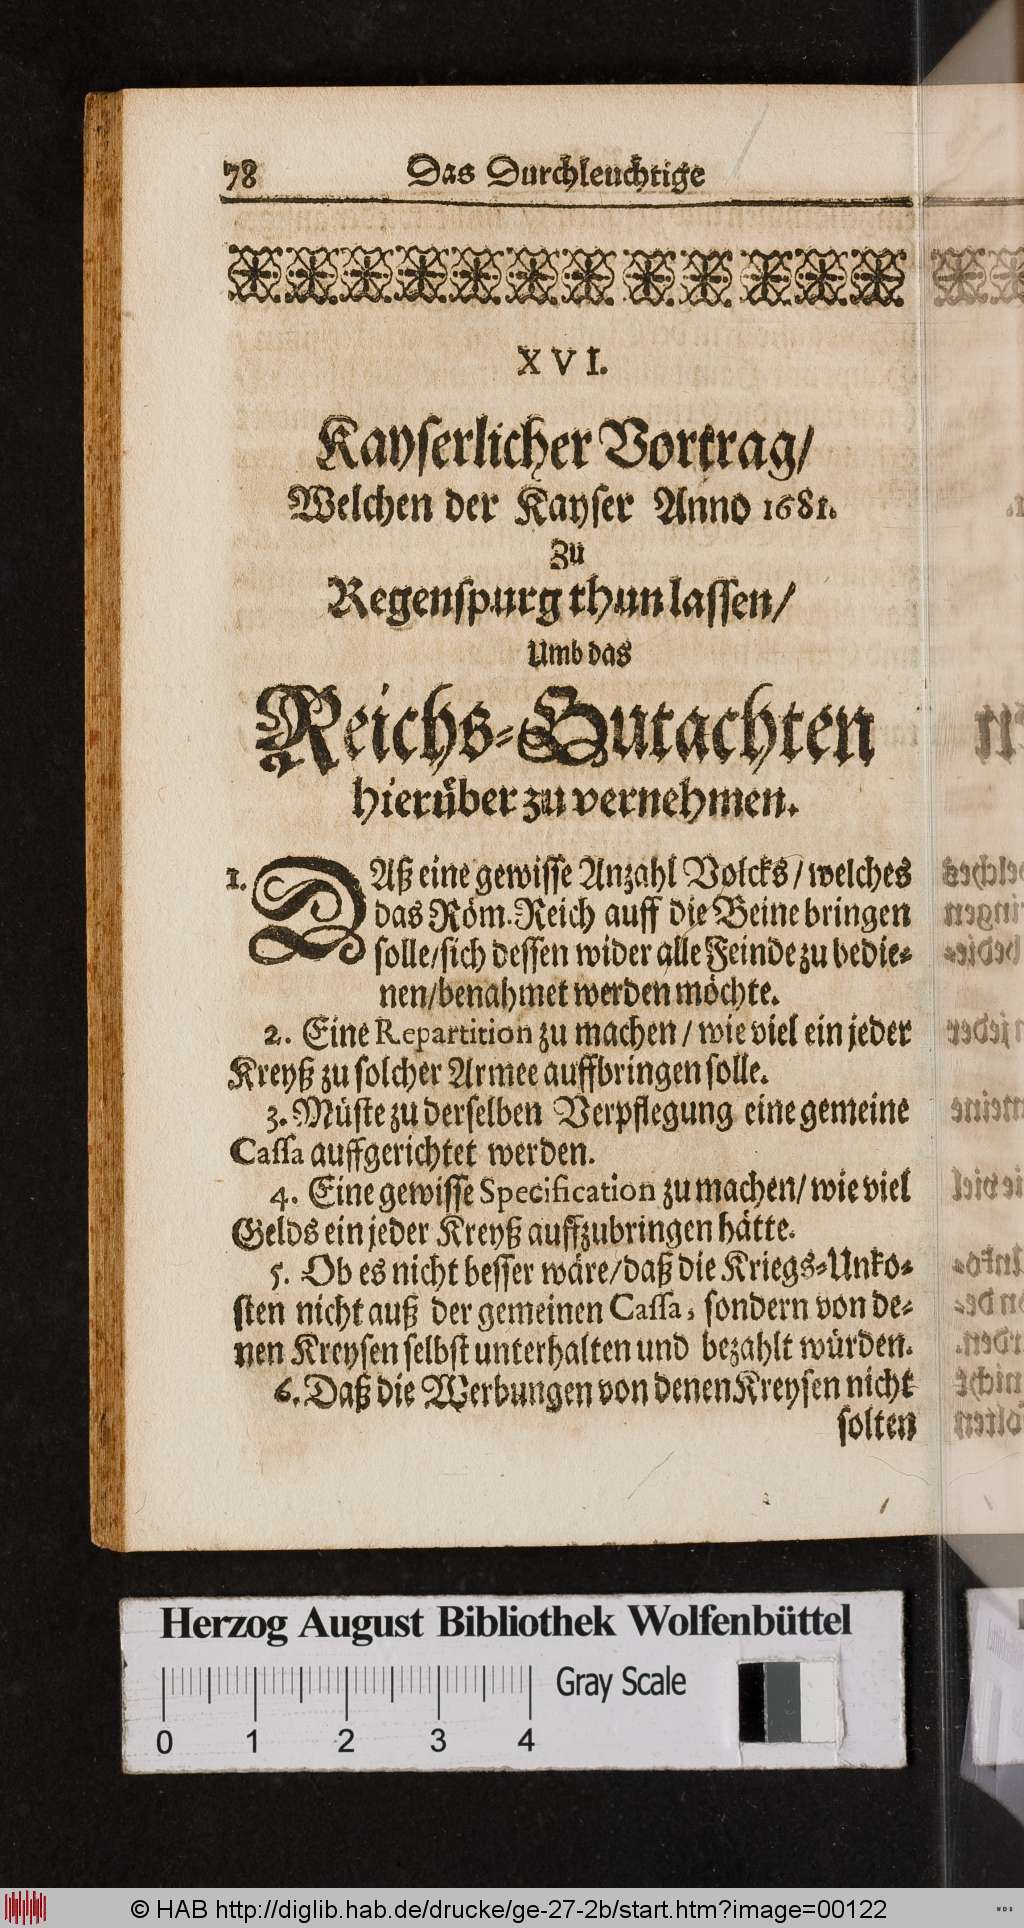 78 Das Durchleuchtige
XVI.
Kayserlicher Vortrag/
Welchen der Kayser Anno 1681.
Zu
Regenspurg thun lassen/
Umb das
Reichs-Gutachten
hierüber zu vernehmen.
1. DAß eine gewisse Anzahl Volcks / welches
das Röm. Reich auff die Beine bringen
solle/sich dessen wider alle Feinde zu bedie-
nen/benahmet werden möchte.
2. Eine Repartition zu machen / wie viel ein jeder
Kreyß zu solcher Armee auffbringen solle.
3. Müste zu derselben Verpflegung eine gemeine
Cassa auffgerichtet werden.
4. Eine gewisse Specification zu machen/ wie viel
Gelds ein jeder Kreyß auffzubringen hätte.
5. Ob es nicht besser wäre/daß die Kriegs-Unko-
sten nicht auß der gemeinen Cassa, sondern von de-
nen Kreysen selbst unterhalten und bezahlt würden.
6. Daß die Werbungen von denen Kreysen nicht
solten
Herzog August Bibliothek Wolfenbüttel
Gray Scale
0 1 2 3 4
© HAB http://diglib.hab.de/drucke/ge-27-2b/start.htm?image=00122